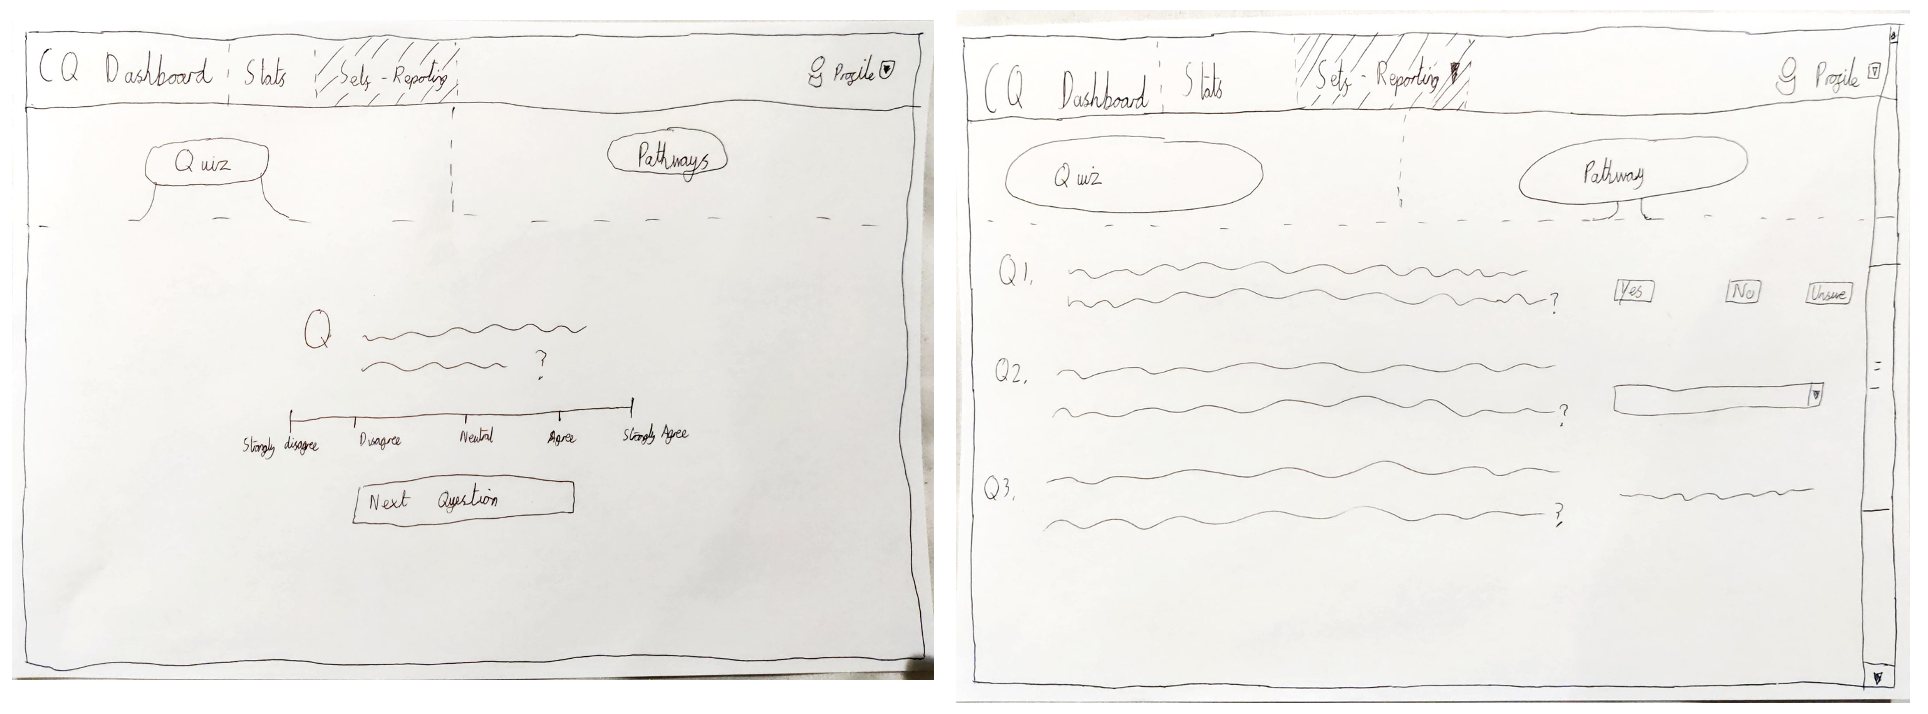 CQ Dashboard Stats Self-Reporting Profile
Quiz Pathways
Q
?
Strongly disagree Disagree Neutral Agree Strongly Agree
Next Question
CQ Dashboard Stats Self-Reporting Profile
Quiz Pathway
Q1.
? Yes No Unsure
Q2.
?
Q3.
?